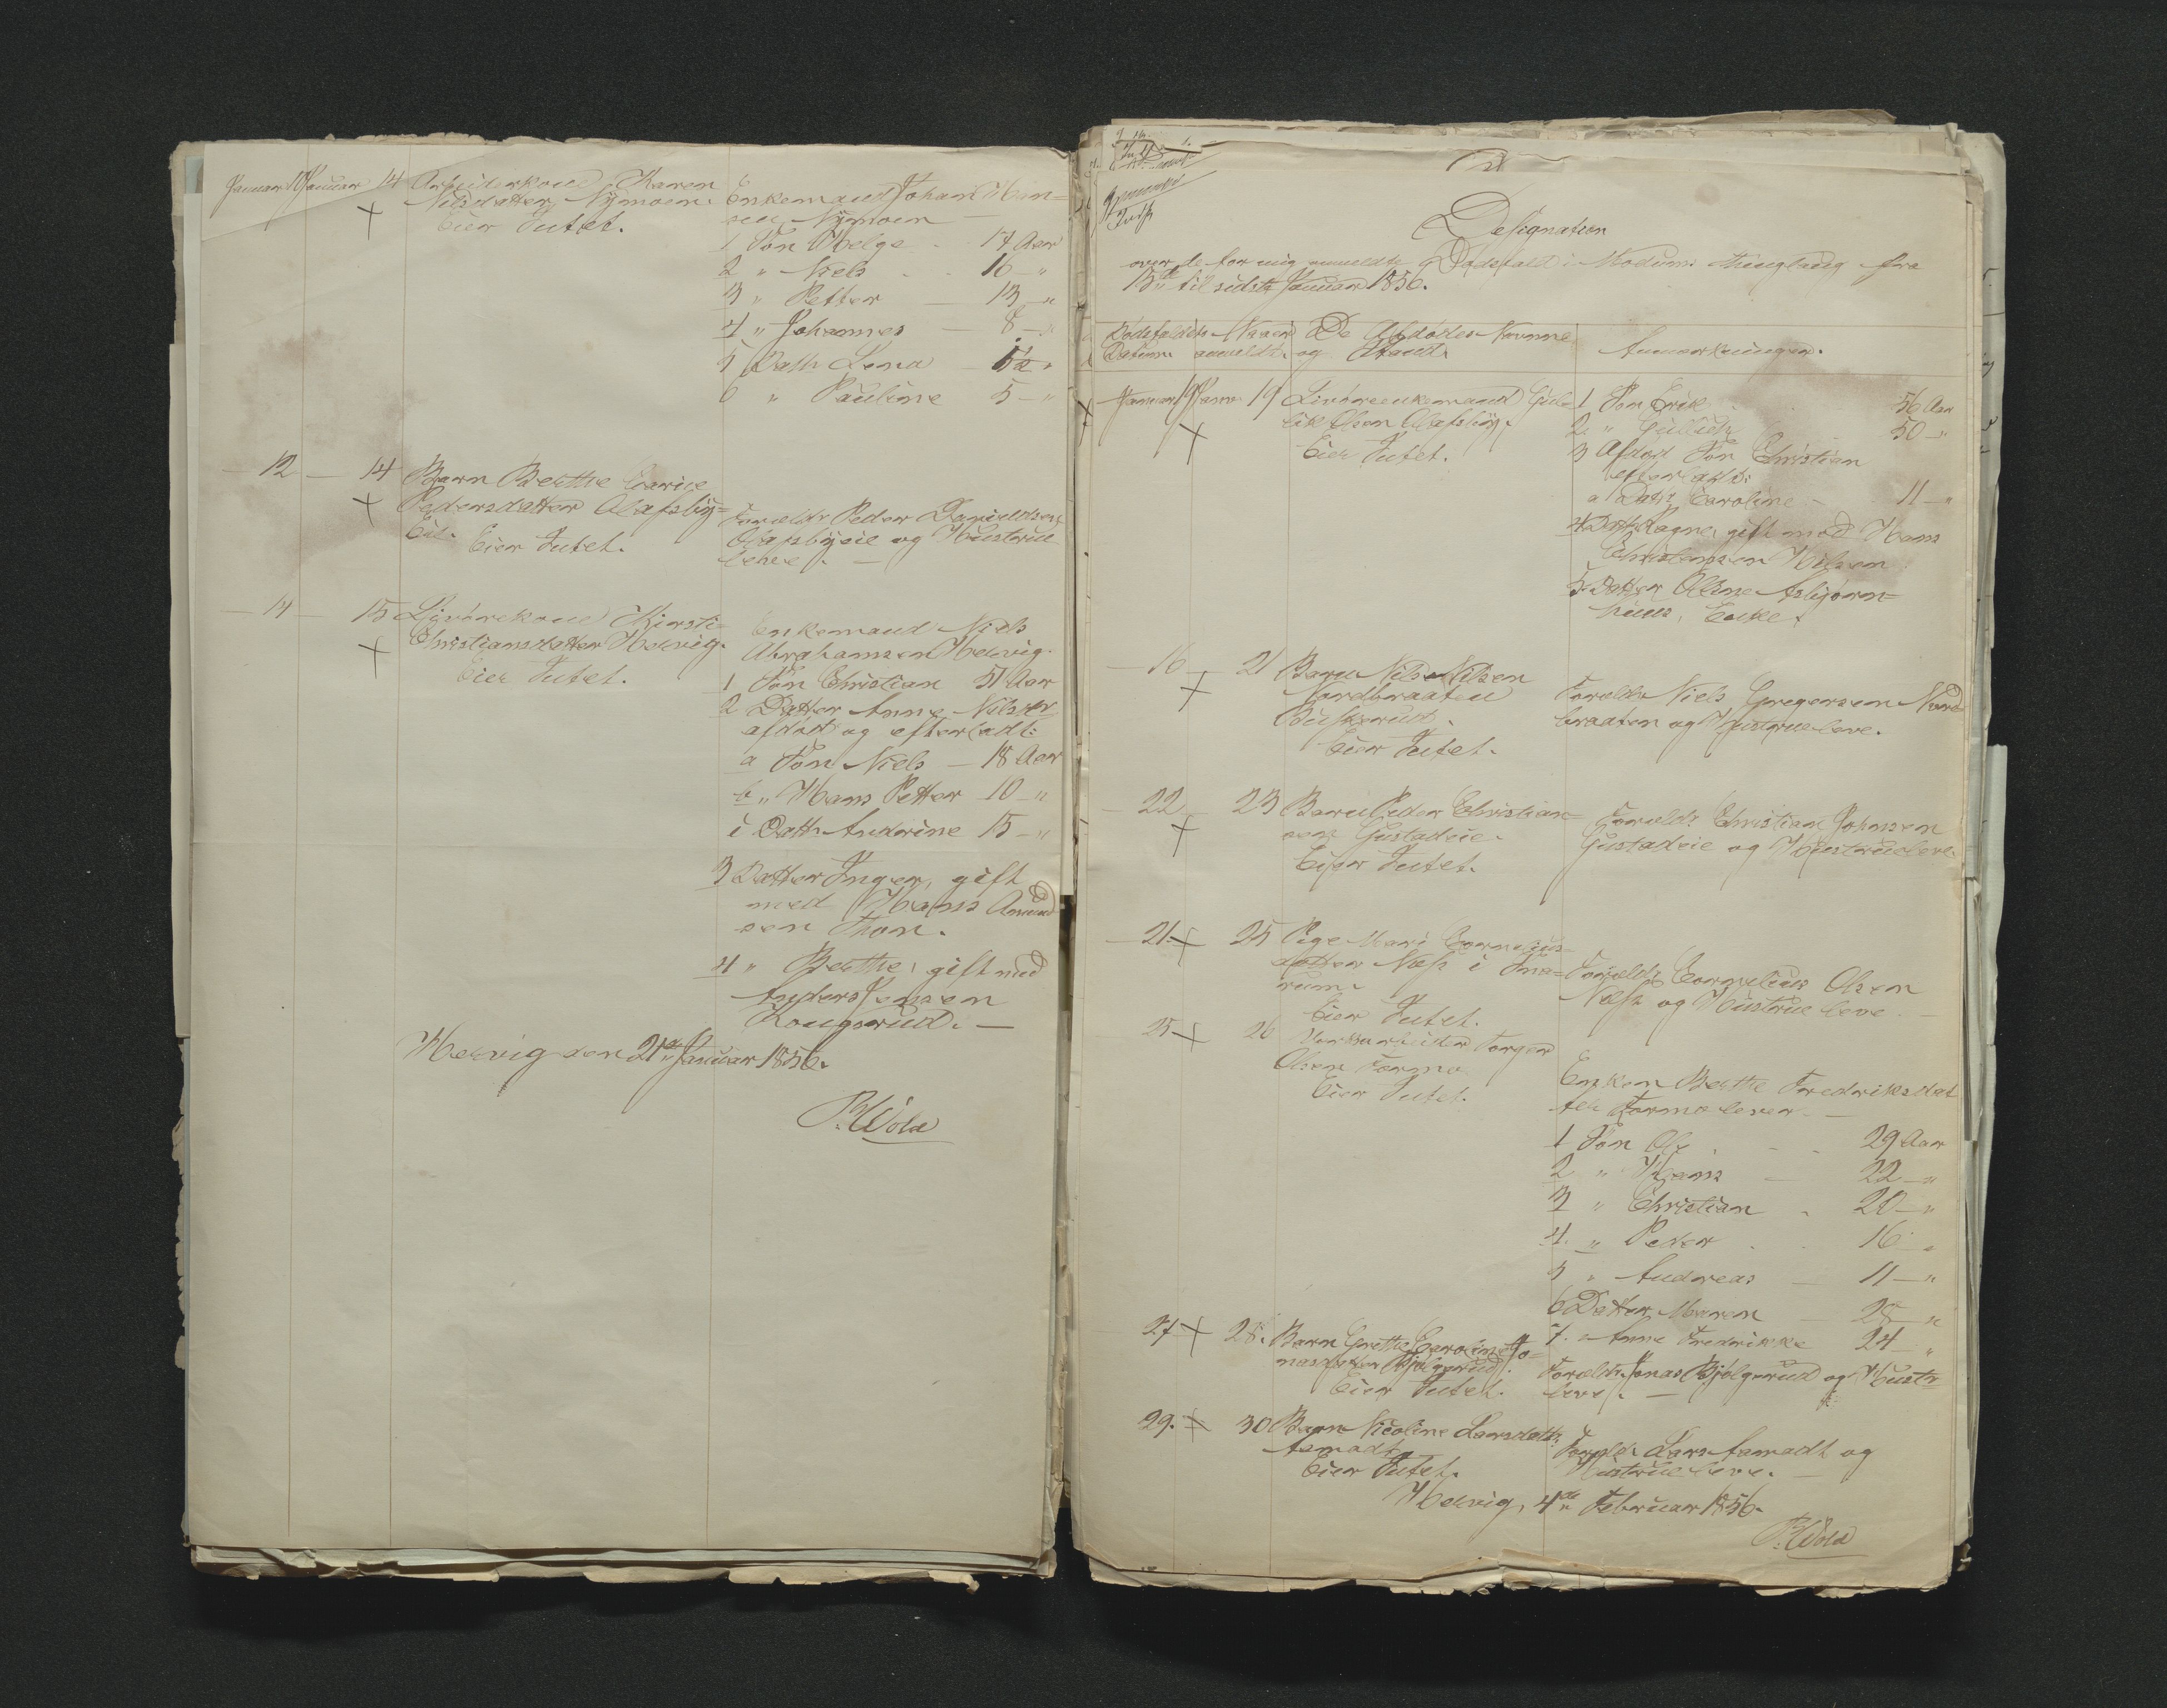 Januar 10 Januar 14 Arbeiderkone Karen
Nilsdatter Nymoen.
Eier Intet.
Enkemand Johan Han=
sen Nymoen
1 Søn Helge 17 Aar
2 " Niels 16 "
3 " Petter 13 "
4 " Johannes 8 "
5 Datt. Lena
6 " Pauline 5 "
12 14 Barn Berthe Carine
Pedersdatter Olafsby=
Eie.
Eier Intet.
Forældr. Peder Danieldsen
Olafsbyeie og Hustrue
leve.
14 15 Livørekone Kirsti
Christiansdatter Hedvig.
Eier Intet.
Enkemand Niels
Abrahamsen Hedvig.
1 Søn Christian 51 Aar
2 Datter Anne Nilsdtr
afdød og efterladt:
a Søn Niels 18 Aar
b " Hans Petter 10 "
i Datt. Andrine 15 "
3 Datter Inger, gift
med Hans Amund
sen Thon.
4 " Berthe, gift med
Anders Jensen
Kongsrud.
den 21de Januar 1856.
P. Wold
Designation
over de for mig anmeldte Dødsfald i Modums Thinglaug fra
15de til sidste Januar 1856.
Dødsfaldets Datum
Naar anmeldt.
De Afdødes Navnne
og Stand.
Anmærkninger.
Januar 19 Janr. 19 Livøreenkemand Gul=
lik Olsen Olafsby.
Eier Intet.
1 Søn Erik 56 Aar
2 " Gullik 50 "
3 Afdød Søn Christian
efterladt:
a Datt. Caroline 11 "
4 Datt. Ragne, gift med Hans
Christensen
5 Datter Oline Asbjørn=
huus, Enke.
16 21 Barn Nils Nilsen
Nordbraaten
Buskerud.
Eier Intet.
Forældr. Niels Gregersen Nord
braaten og Hustrue leve.
22 23 Barn Peder Christian=
sen Gustadeie.
Eier Intet.
Forældr. Christian Johnsen
Gustadeie og Hustrue leve
21 25 Pige Mari Cornelius
datter Næss i Sna=
rum.
Eier Intet.
Forældr. Cornelius Olsen
Næss og Hustrue leve.
25 26 Værksarbeider Torger
Olsen Formo
Eier Intet.
Enken Berthe Fredriksdat
ter Formo lever.
1 Søn Ole 29 Aar
2 " Hans 22 "
3 " Christian 20 "
4 " Peder 16 "
5 " Andreas 11 "
6 Datter Maren 28 "
7 " Anne Fredrikke 24 "
27 28. Barn Grethe Caroline Jo=
nasdatter Bjølgerud.
Eier Intet.
Forældr. Jonas Bjølgerud og Hustr
leve.
29. 30 Barn Nicoline Larsdatt.
Aamodt
Eier Intet.
Forældr. Lars Aamodt og
Hustrue leve.
4de Februar 1856.
P. Wold